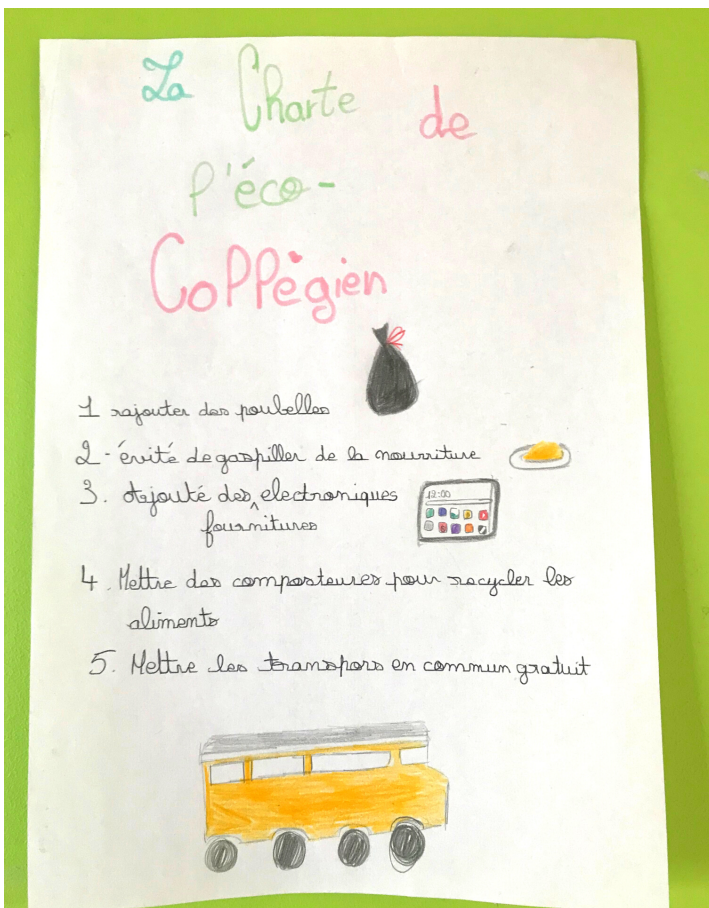 La Charte de
l'éco-
Collégien
1 rajouter des poubelles
2- évité de gaspiller de la nourriture
3. Ajouté des ^ electroniques
fournitures
12:00
4. Mettre des composteures pour recycler les
aliments
5. Mettre les transpors en commun gratuit